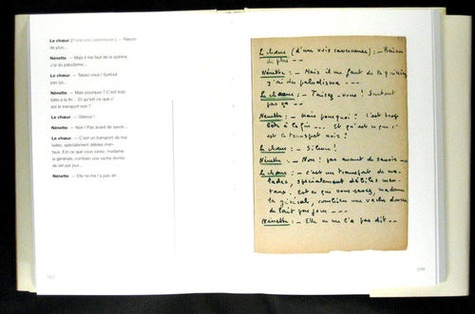 Le chœur (d'une voix caverneuse). — Raison
de plus...
Nénette. — Mais il me faut de la quinine,
J'ai du paludisme...
Le chœur. — Taisez-vous ! Surtout
pas ça...
Nénette. — Mais pourquoi ? C'est trop
bête à la fin... Et qu'est-ce que c'
est le transport noir ?
Le chœur. — Silence !
Nénette. — Non ! Pas avant de savoir...
Le chœur. — C'est un transport de ma-
lades, spécialement débiles men-
taux. Est-ce que vous savez, madame
la générale, combien une vache donne
de lait par jour...
Nénette. — Elle ne m'a pas dit...
Le chœur (d'une voix caverneuse) : — Raison
de plus —
Nénette : — Mais il me faut de la quinine,
j'ai du paludisme —
Le chœur : — Taisez-vous ! Surtout
pas ça —
Nénette : — Mais pourquoi ? C'est trop
bête à la fin — Et qu'est ce que c'
est le transport noir ?
Le chœur : — Silence !
Nénette : — Non ! pas avant de savoir —
Le chœur : — c'est un transport de ma-
lades, spécialement débiles men-
taux. Est ce que vous savez, madame
la générale, combien une vache donne
de lait par jour — — —
Nénette : — Elle ne m'a pas dit —